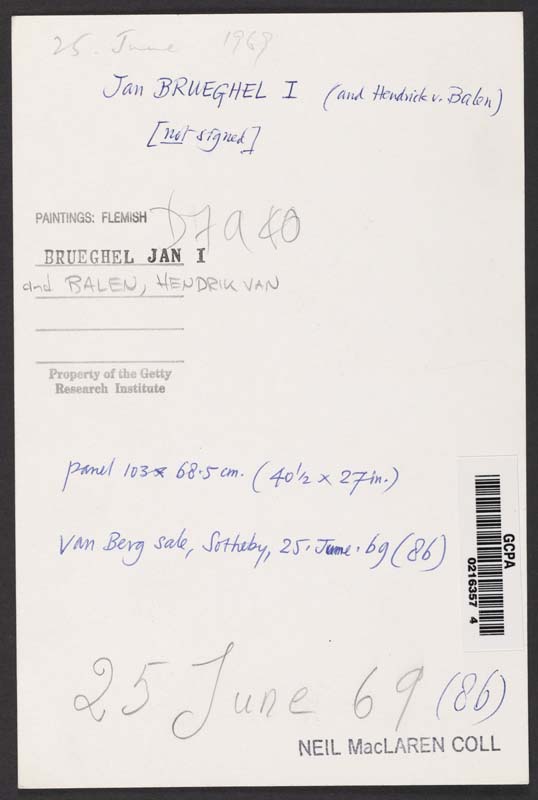 25. June 1969
Jan BRUEGHEL I (and Hendrick v. Balen)
[not signed]
PAINTINGS: FLEMISH
BRUEGHEL JAN I
and BALEN, HENDRIK VAN
Property of the Getty
Research Institute
panel 103 x 68.5 cm. (40 1/2 x 27 in.)
Van Berg sale, Sotheby, 25. June. 69 (86)
GCPA
0216357 4
25 June 69 (86)
NEIL MacLAREN COLL